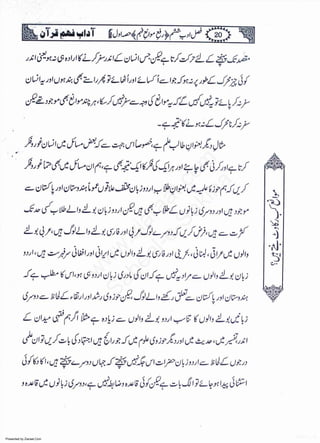 آداب فہم قرآن
فصل اول ادب ششم (رفع موانع فہم) (حصہ اول)
20
مقصد تک پہنچنے کے لئے حرکت کرتا ہے لیکن جس انسان کے اندر سفر کرنے کا ارادہ ہی نہ ہو یعنی اندر
کوئی چیز محرک کے طور پر نہ ہو کہ جو اسے اکسائے اور اٹھائے تو پھر راستے بھی بند ہوں اور یہ انسان
سفر نہ کر پائے تو یہ نہیں کہیں گے کہ یہ موانع کی وجہ سے سفر نہیں کر سکا، ہر چند موانع بھی موجود تھے لیکن
سفر نہ کرنا محرک کے نہ ہونے کا نتیجہ ہے۔
مثال دیگر بعنوان طالب علم ہے، خصوصاً اس جہت سے کہ بعض مسائل میں انسان غور و فکر
کرتا ہے اور کرنی بھی چاہئے اور ہر ایک کی فکر کا ایک نتیجہ بھی ہے، ہم ان مسائل میں بھی حتماً غور و فکر
کریں کہ ہم حوزہ علمیہ میں بعنوان طلاب اردو زبان مختلف علاقوں عموماً ہندوستان اور پاکستان سے
موجود ہیں اور دوسری زبانوں کے طلاب بھی ہیں لیکن اردو زبان بولنے والے طلاب کسی حد تک
کثرت سے ہیں، فرض کریں کہ دوسرے لوگ عربی اور فارسی بولنے والے ہیں، عربی بولنے
والوں میں عراقی، لبنانی، بحرینی اور فارسی بولنے والوں میں ایرانی اور افغانی سرفہرست ہیں، اردو
بولنے والوں سے مراد یہ نہیں ہے کہ ان کی مادری زبان اردو ہی ہو، اس کا مطلب ہے کہ
ہندوستان اور پاکستان سے تعلق رکھنے والے لوگ، لیکن حوزوی رشد اور ارتقاء کے لحاظ سے دوسری
زبانیں بولنے والوں کا تناسب اردو بولنے والوں سے زیادہ ہے مثلاً اگر ہم فقہی میدان کے
اندر، تفسیر میں، حدیث میں اور دیگر حوزوی علوم میں کہ جو رائج ہیں اجتہاد کی بات کریں تو ان علمی
درجوں کے لحاظ سے اردو زبان حضرات اس جگہ نہیں پہنچتے کہ جہاں دوسرے پہنچتے ہیں، اکا دکا کوئی
استثنائی پیدا ہو جائے تو الگ بات ہے لیکن کوئی قاعدہ و ضابطہ نہیں ہے، دوسری زبانوں میں قاعدہ و
موانع کب رکاوٹ بنتے ہیں؟
Presented by Ziaraat.Com